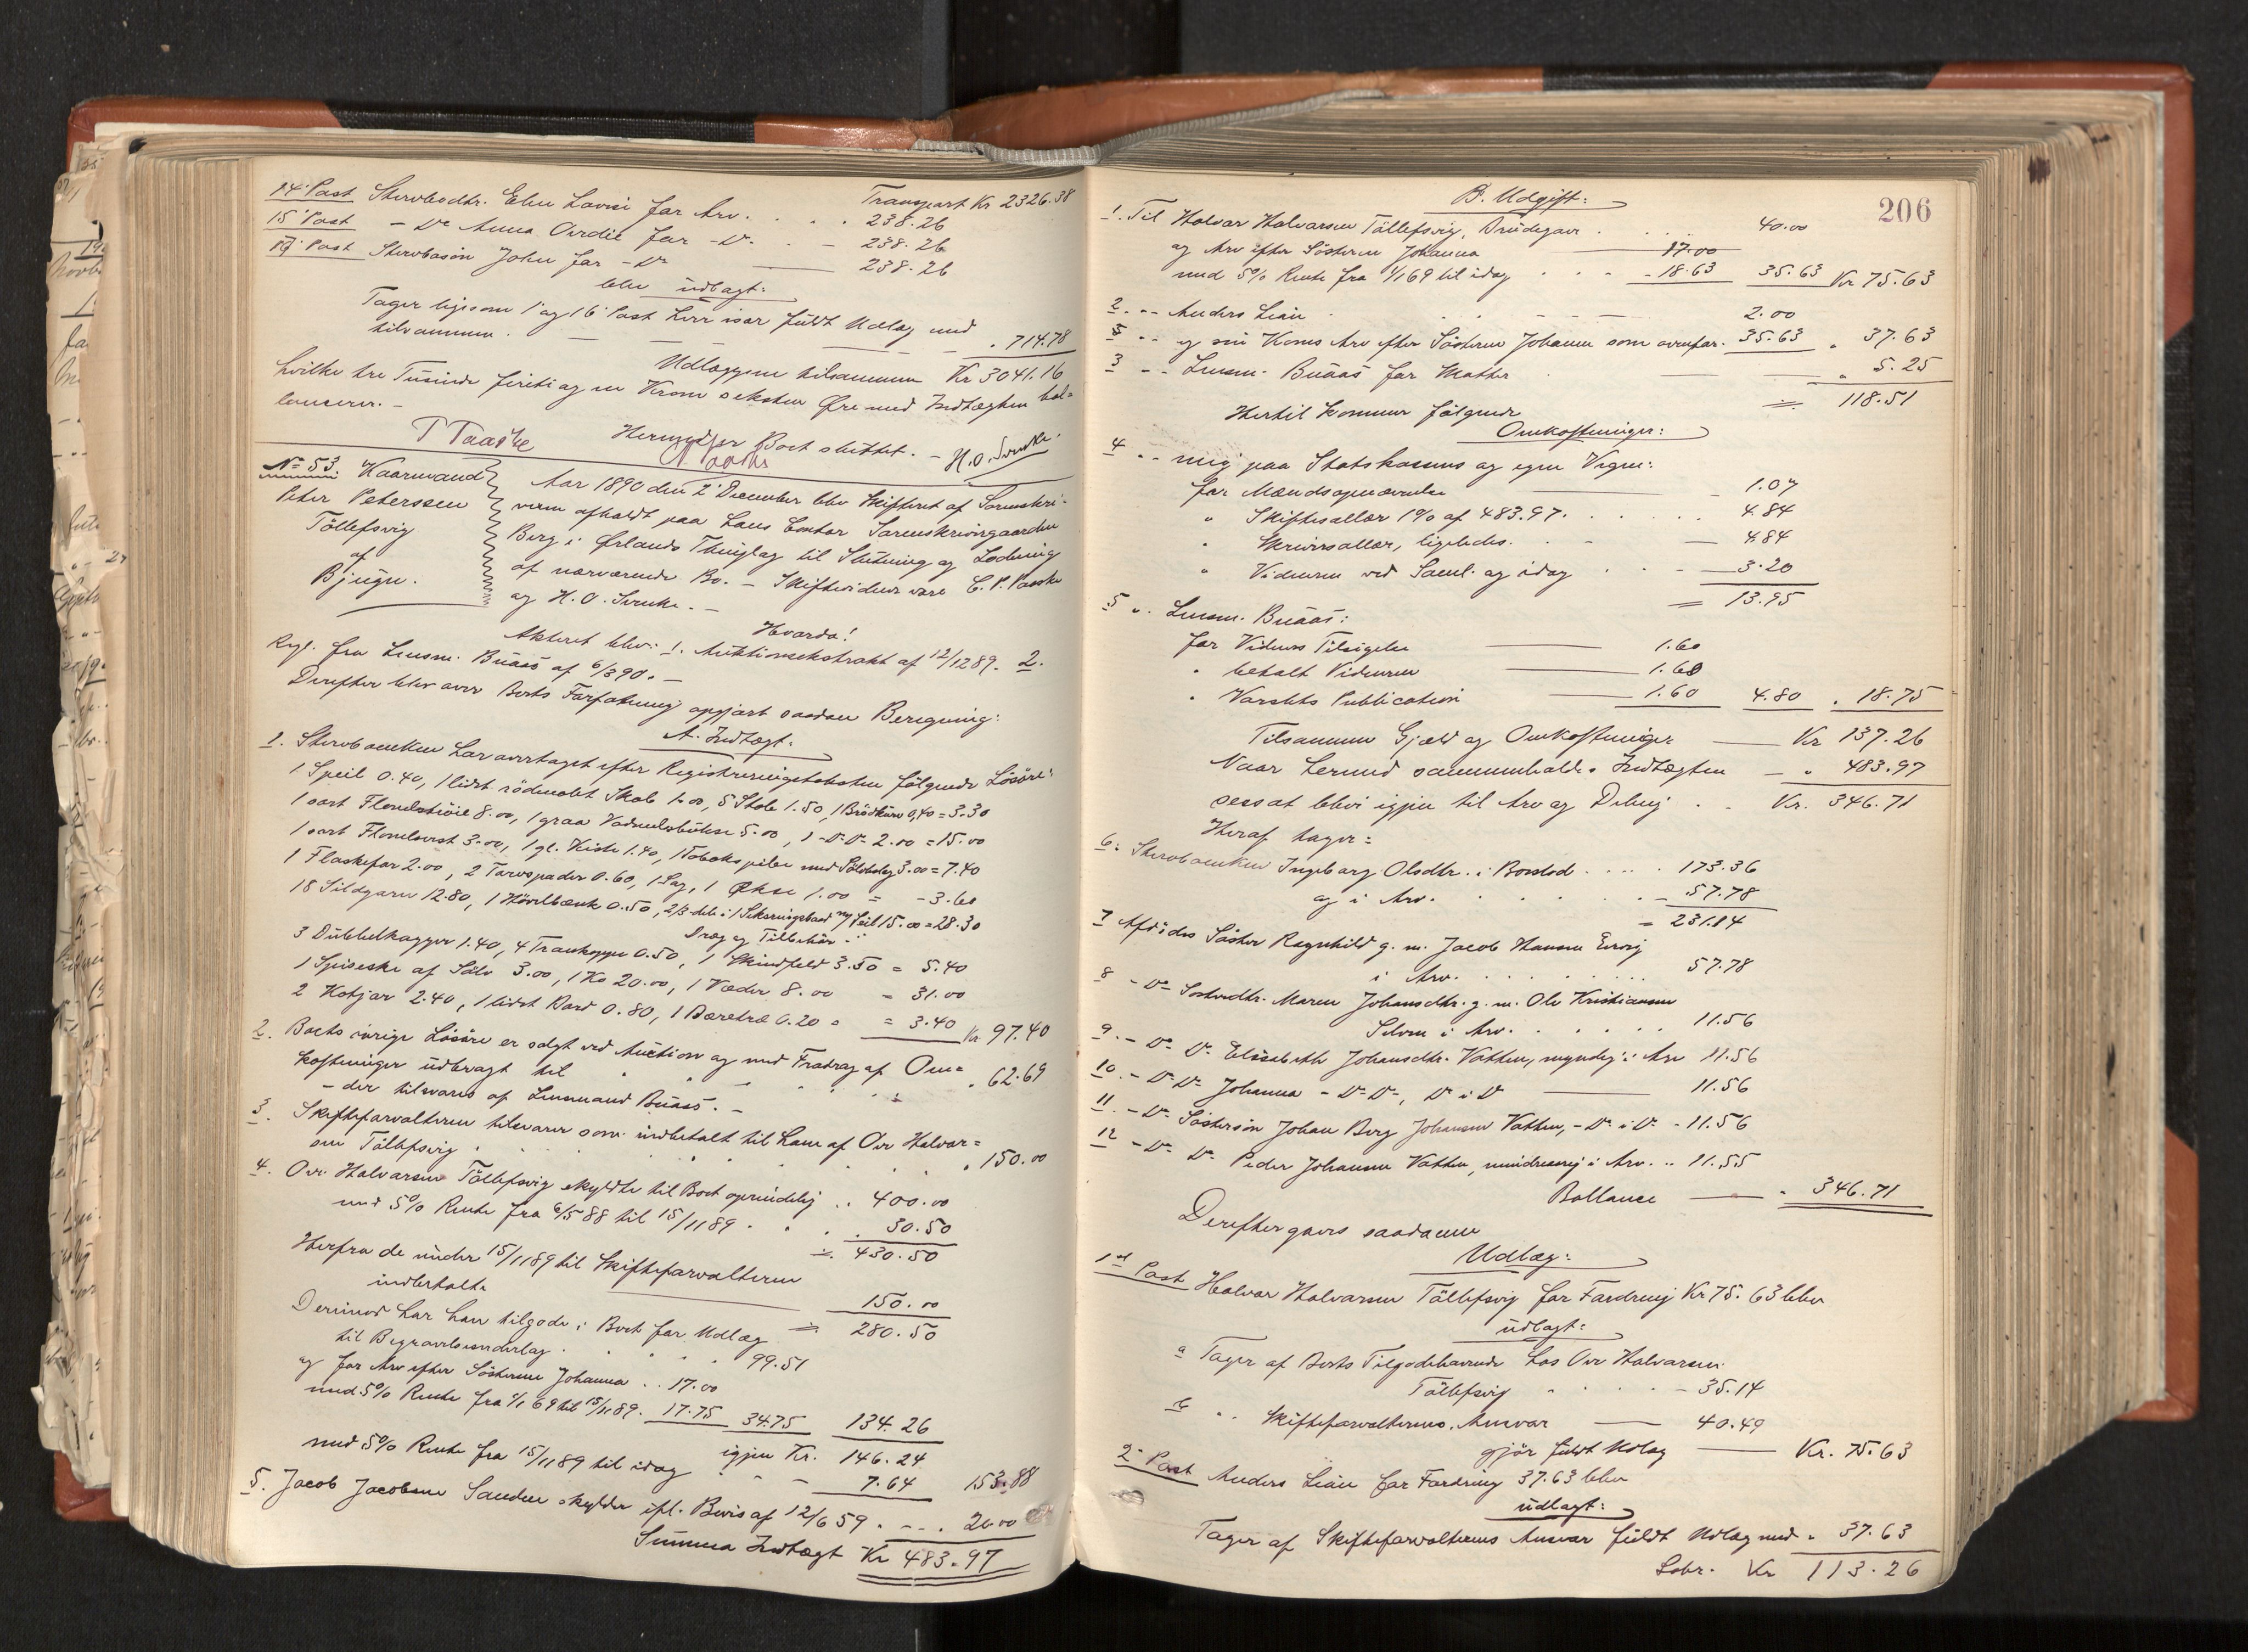 Transport Kr 2326.38
14' Post Stervbodtr. Elen Lovise for Arv. . . . 238.26
15' Post - Do Anna Ovidie for - Do. . . - 238.26
16' Post Stervbosøn John for - Do — 238.26
blev udlagt:
Tager ligesom 1' og 16' Post hver især fuldt Udlæg med
tilsammen . — — — — . 714.78
Udlæggene tilsammen Kr 3041.16
hvilke tre Tusinde firti og en Krone seksten Øre med Indtægten bal=
lancerer. -
Hermed er Boet sluttet. -
P Paaske H.O. Svenke.
No 53. Kaarmand
Peter Peterssen
Töllefsvig
af
Bjugn.
Aar 1890 den 2' December blev Skifteret af Sorenskri-
veren afholdt paa hans Contor Sorenskrivergaarden
Berg i Ørlands Thinglag til Slutning og Lodning
af nærværende Bo. - Skiftevidner vare C. P. Paaske
og H. O. Svenke. -
Hvorda!
Akteret blev: 1. Auktionsekstrakt af 12/12 89. 2.
Rgl. fra Lensm. Buaas af 6/3 90. -
Derefter blev over Boets Forfatning opgjort saadan Beregning:
A. Indtægt:
1. Stervboenken har overtaget efter Registreringstaksten følgende Løsøre:
1 Speil 0.40, 1 lidet rödmalet Skab 1.00, 5 Stole 1.50, 1 Brödkurv 0,40 = 3.30
1 sort Flonelstrøie 8.00, 1 graa Vadmelsbukse 5.00, 1 - Do Do 2.00 = 15.00
1 sort Flonelsvest 3.00, 1 gl. Kiste 1.40, 1 Tobakspibe med Sölvbeslag 3.00 = 7.40
1 Flaskefor 2.00, 2 Torvspader 0.60, 1 Sag, 1 Økse 1.00 = - 3.60
18 Sildgarn 12.80, 1 Hövelbænk 0.50, 2/3-dele i 1 Seksringsbaad m/ Seil 15.00 = 28.30
Dræg og Tilbehør
3 Dubbelkagger 1.40, 4 Trankagger 0.50, 1 Skindfeld 3.50 = 5.40
1 Spiseske af Sølv 3.00, 1 Ko 20.00, 1 Væder 8.00 = 31.00
2 Kobjør 2.40, 1 lidet Bord 0.80, 1 Bæretræ 0.20 = = 3.40 Kr 97.40
2. Boets øvrige Løsøre er solgt ved Auction og med Fradrag af Om=
kostninger udbragt til . . . . . 62.69
- der tilsvares af Lensmand Buaas. -
3. Skifteforvalteren tilsvarer som indbetalt til ham af Ove Halvor=
sen Töllefsvig . . . . . . 150.00
4. Ove Halvorsen Töllefsvig skyldte til Boet oprindelig .. 400.00
med 5% Rente fra 6/5 88 til 15/11 89 . . . 30.50
= 430.50
Herfra de under 15/11 89 til Skifteforvalteren
indbetalte — 150.00
= 280.50
Derimod har han tilgode i Boet for Udlæg
til Begravelsesudlæg . . . . 99.51
og for Arv efter Søsteren Johanna .. 17.00
med 5% Rente fra 1/1 69 til 15/11 89. 17.75 34.75 134.26
igjen Kr. 146.24
med 5% Rente fra 15/11 89 til idag . - - 7.64 153.88
5. Jacob Jacobsen Sanden skylder ifl. Bevis af 12/6 59 . - - . 20.00
Summa Indtægt Kr 483.97
206
B. Udgift:
1. Til Halvor Halvorsen Töllefsvig, Drivdegave . . . . 40.00
og Arv efter Søsteren Johanna — 17.00
med 5% Rente fra 1/1 69 til idag . . . - 18.63 35.63 Kr 75.63
2. -- Anders Lien . . . . - - — 2.00
5 -- og sin Kones Arv efter Søsteren Johanna som ovenfor. 35.63 . 37.63
3 -- Lensm. Buaas for Mulkter — . 5.25
= 118.51
Hertil kommer følgende
Omkostninger:
4 -- mig paa Statskassens og egne Vegne:
for Mændsopnævnelse — - 1.07
" Skiftesallær 1% af 483.97. . . . . 4.84
" Skriversallær, ligeledes. . - — 4.84
" Vidnerne ved Saml. og idag . . - - 3.20
= 13.95
5 ". Lensm. Buaas:
for Vidners Tilsigelse — 1.60
" betalt Vidnerne — 1.60
" Varslets Publication — 1.60 4.80 . 18.75
Tilsammen Gjæld og Omkostninger — Kr 137.26
Naar hermed sammenholdes Indtægten - . 483.97
sees at blive igjen til Arv og Deling . . Kr. 346.71
Heraf tager:
6: Stervboenken Ingeborg Olsdtr. i Boeslod . . . . 173.36
og i Arv. . . . . . - 57.78
= 231.14
7 Afdödes Søster Ragnhild g. m. Jacob Hansen Ervig
i Arv. . . . . . . . . 57.78
8 - Do Søsterdtr. Maren Johansdtr. g. m. Ole Kristiansen
Selven i Arv. . . . . . . 11.56
9. - Do Do Elisabeth Johansdtr. Vatten, myndig i Arv 11.56
10. - Do Do Johanna - Do Do -, Do i Do — 11.56
11. - Do Søstersøn Johan Berg Johansen Vatten, - Do i Do - 11.56
12 - Do Do Peder Johansen Vatten, mindreaarig i Arv. .. 11.55
Ballance — . 346.71
Derefter gjøres saadanne
Udlæg:
1st Post Halvor Halvorsen Töllefsvig for Fordring Kr 75.63 blev
udlagt:
a Tager af Boets Tilgodehavende hos Ove Halvorsen
Töllefsvig - . . . - 35.14
b .. Skifteforvalterens Ansvar — 40.49
gjør fuldt Udlæg — Kr. 75.63
2' Post Anders Lien for Fordring 37.63 blev
udlagt:
Tager af Skifteforvalterens Ansvar fuldt Udlæg med . 37.63
Labr. Kr 113.26